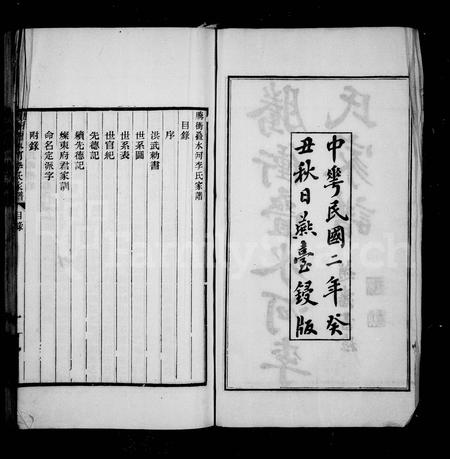 中華民國二年癸
丑秋日燕臺鋟版
騰衝疊水河李氏家譜
目錄
序
洪武勅書
世系圖
世系表
世官紀
先德記
續先德記
煉東府君家訓
命名定派字
附錄
目錄